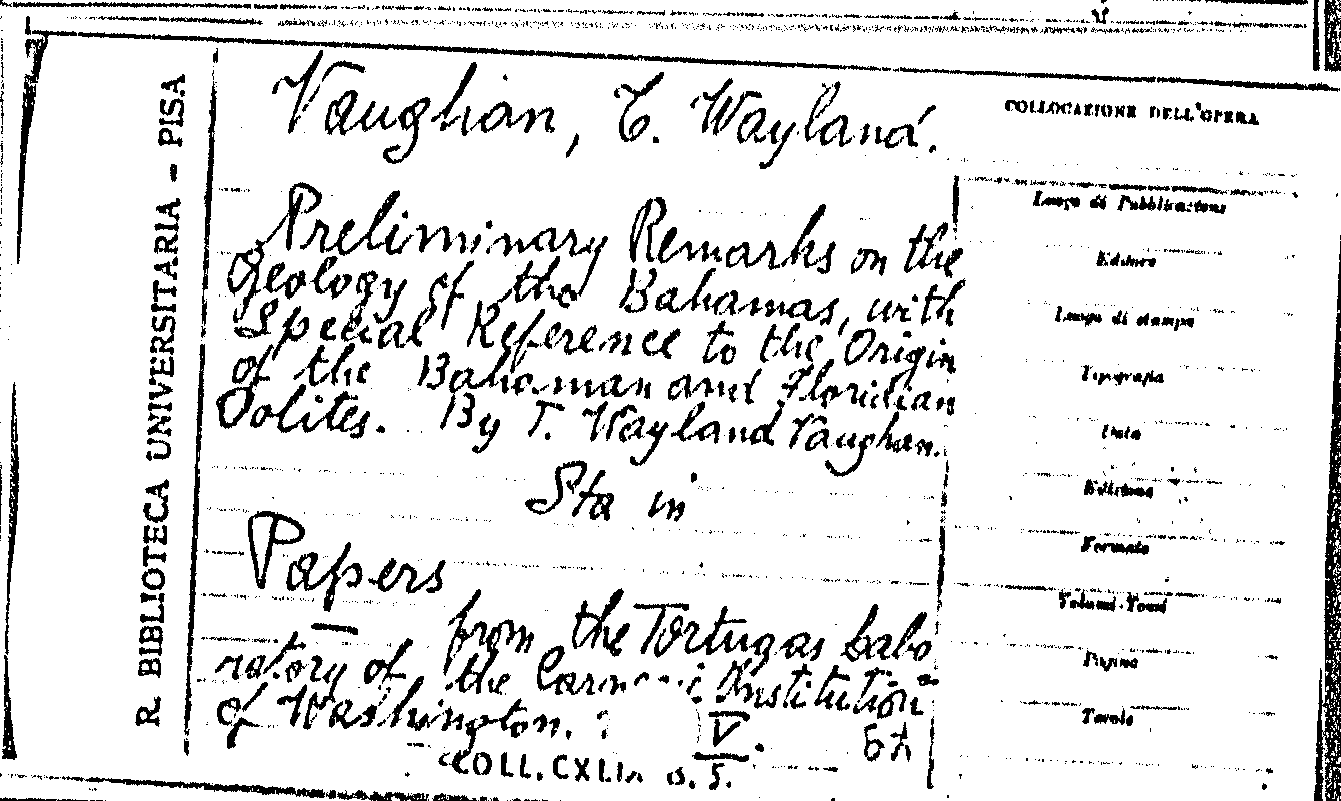 R. BIBLIOTECA UNIVERSITARIA - PISA
Vaughan, T. Wayland.
Preliminary Remarks on the
Geology of the Bahamas, with
Special Reference to the Origin
of the Bahaman and Floridian
Oolites. By T. Wayland Vaughan.
Sta in
Papers
from the Tortugas Labo
ratory of the Institution
of Washington.
V.
COLL. 5.
COLLOCAZIONE DELL'OPERA
Luogo di Pubblicazione
Editore
Luogo di stampa
Tipografia
Data
Edizione
Formato
Volumi-Tomi
Pagine
Tavole